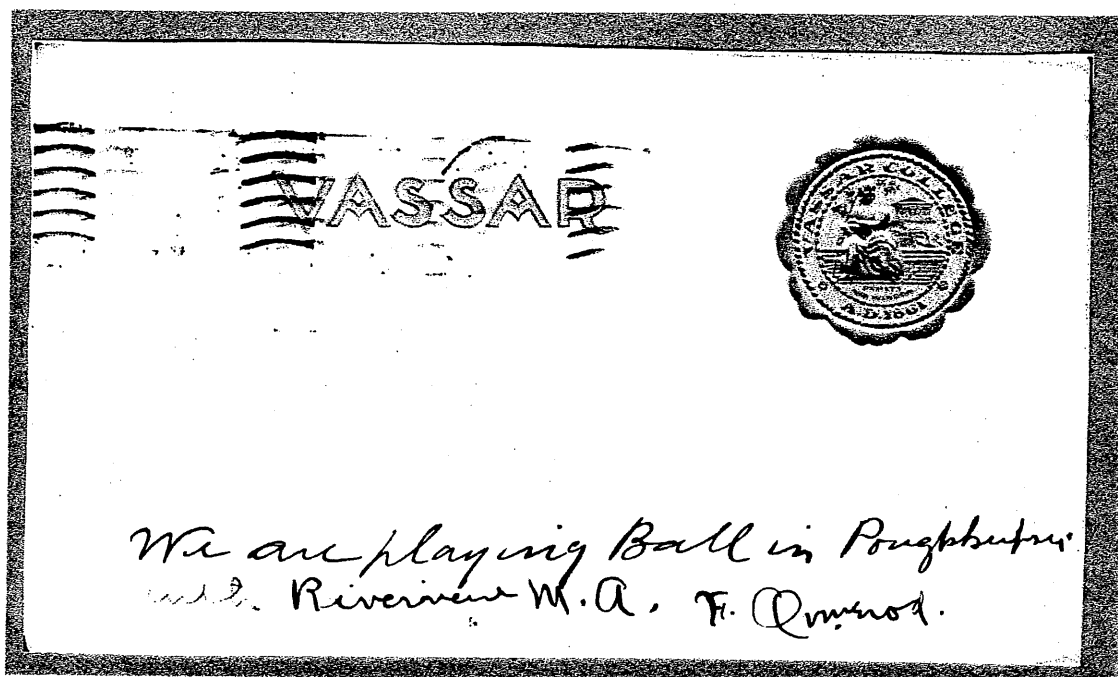 VASSAR
VASSAR COLLEGE
A.D. 1861
We are playing Ball in Poughkeepsie
with Riverview M.A. F. Ormerod.